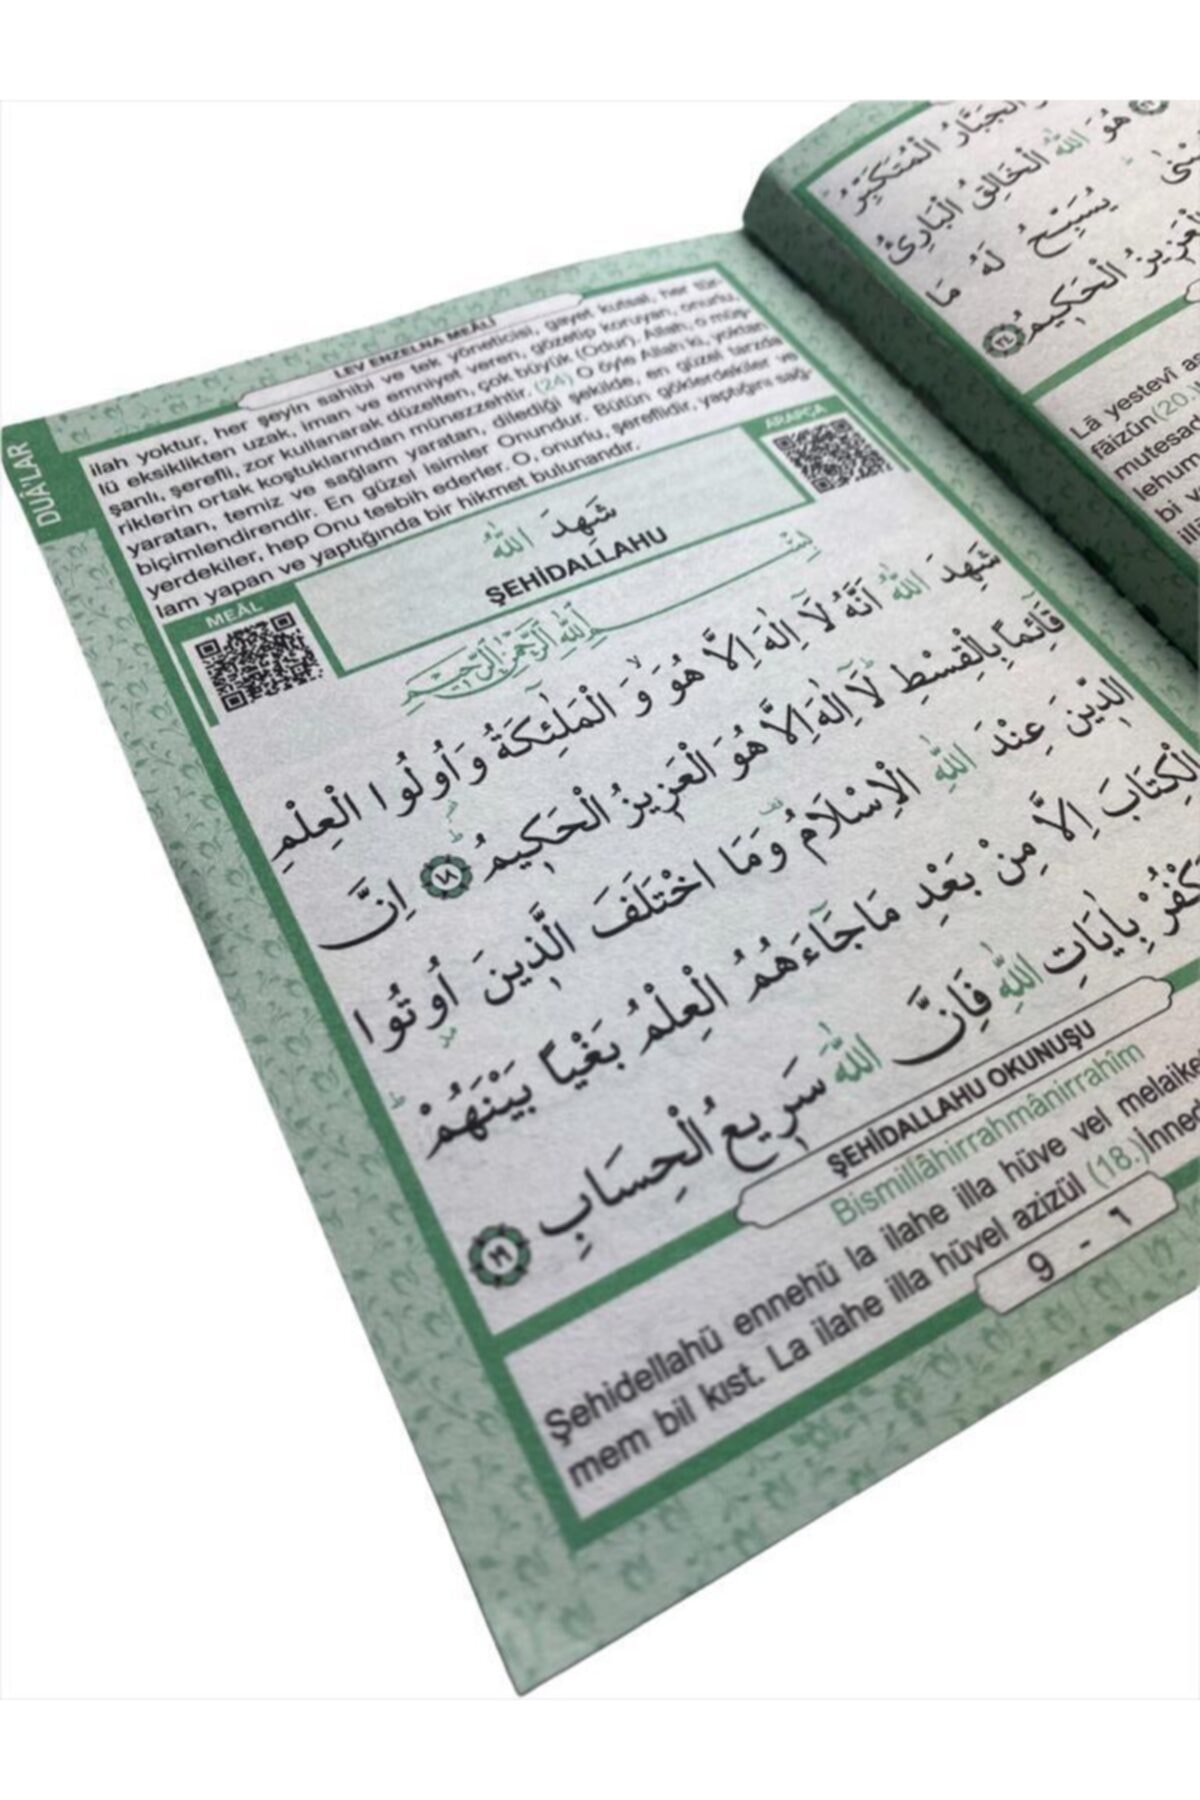 DUÂ'LAR
LEV ENZELNA MEÂLİ
ilah yoktur, her şeyin sahibi ve tek yöneticisi, gayet kutsal, her tür-
lü eksiklikten uzak, iman ve emniyet veren, gözetip koruyan, onurlu,
şanlı, şerefli, zor kullanarak düzelten, çok büyük (Odur). Allah, o müş-
riklerin ortak koştuklarından münezzehtir. (24) O öyle Allah ki, yoktan
yaratan, temiz ve sağlam yaratan, dilediği şekilde, en güzel tarzda
biçimlendirendir. En güzel isimler Onundur. Bütün göklerdekiler ve
yerdekiler, hep Onu tesbih ederler. O, onurlu, şereflidir, yaptığını sağ-
lam yapan ve yaptığında bir hikmet bulunandır.
MEÂL
ARAPÇA
شَهِدَ اللّٰهُ
ŞEHİDALLAHU
بِسْمِ اللّٰهِ الرَّحْمٰنِ الرَّحِيمِ
شَهِدَ اللّٰهُ اَنَّهُ لَآ اِلٰهَ اِلَّا هُوَۙ وَ الْمَلٰٓئِكَةُ وَاُولُوا الْعِلْمِ
قَآئِمًا بِالْقِسْطِۜ لَآ اِلٰهَ اِلَّا هُوَ الْعَزِيزُ الْحَكِيمُۜ ﴿١٨﴾ اِنَّ
الدِّينَ عِنْدَ اللّٰهِ الْاِسْلَامُ وَمَا اخْتَلَفَ الَّذِينَ اُوتُوا
الْكِتَابَ اِلَّا مِنْ بَعْدِ مَاجَآءَهُمُ الْعِلْمُ بَغْيًا بَيْنَهُمْۜ
يَكْفُرْ بِاٰيَاتِ اللّٰهِ فَاِنَّ اللّٰهَ سَرِيعُ الْحِسَابِ ﴿١٩﴾
ŞEHİDALLAHU OKUNUŞU
Bismillâhirrahmânirrahîm
Şehidellahü ennehü la ilahe illa hüve vel melaike
mem bil kıst. La ilahe illa hüvel azizül (18.)İnned
9 - ٦
الْجَبَّارُ الْمُتَكَبِّرُ
هُوَ اللّٰهُ الْخَالِقُ الْبَارِئُ
يُسَبِّحُ لَهُ مَا
الْعَزِيزُ الْحَكِيمُ ﴿٢٤﴾
Lâ yestevî as
fâizûn(20.
mutesad
lehum
bi y
ill